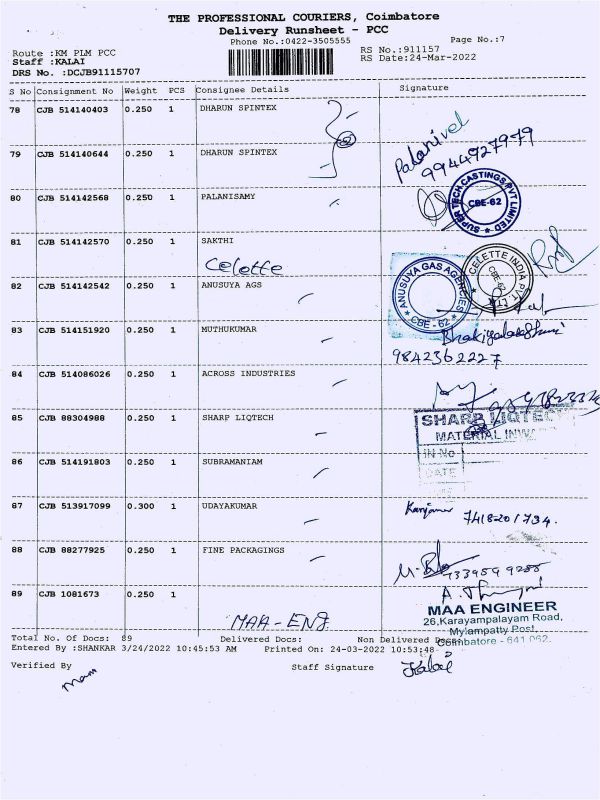 THE PROFESSIONAL COURIERS, Coimbatore
Delivery Runsheet - PCC
Phone No.:0422-3505555
Page No.:7
Route :KM PLM PCC
RS No.:911157
Staff :KALAI
RS Date:24-Mar-2022
DRS No. :DCJB91115707
S No Consignment No Weight PCS Consignee Details Signature
78 CJB 514140403 0.250 1 DHARUN SPINTEX
Palanivel
9944927979
79 CJB 514140644 0.250 1 DHARUN SPINTEX
SUPER TECH CASTINGS PVT LIMITED
CBE-62
80 CJB 514142568 0.250 1 PALANISAMY
81 CJB 514142570 0.250 1 SAKTHI
Celette
CELETTE INDIA PVT. LTD
CBE-62
82 CJB 514142542 0.250 1 ANUSUYA AGS
ANUSUYA GAS AGENCIES
CBE - 62
83 CJB 514151920 0.250 1 MUTHUKUMAR
9842362227
84 CJB 514086026 0.250 1 ACROSS INDUSTRIES
85 CJB 88304988 0.250 1 SHARP LIQTECH
SHARP LIQTEC
MATERIAL INWA
IN No
DATE
86 CJB 514191803 0.250 1 SUBRAMANIAM
87 CJB 513917099 0.300 1 UDAYAKUMAR
7418201734.
88 CJB 88277925 0.250 1 FINE PACKAGINGS
89 CJB 1081673 0.250 1
MAA - ENG.
MAA ENGINEER
26,Karayampalayam Road,
Mylampatty Post,
Coimbatore - 641 062.
Total No. Of Docs: 89 Delivered Docs: Non Delivered Docs:
Entered By :SHANKAR 3/24/2022 10:45:53 AM Printed On: 24-03-2022 10:53:48
Verified By Staff Signature
Kalai